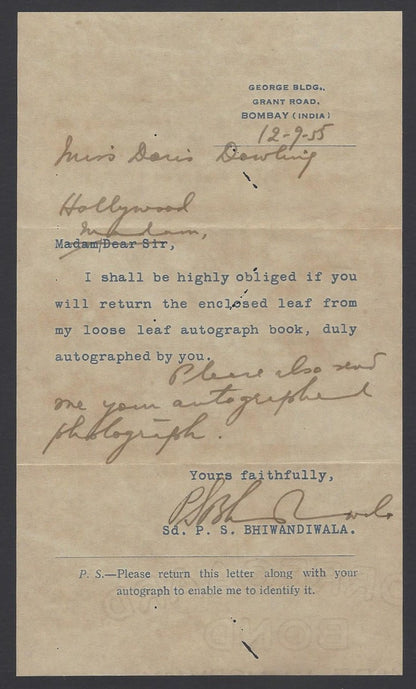 GEORGE BLDG.,
GRANT ROAD,
BOMBAY (INDIA)
12-9-55
Miss Doris Dowling
Hollywood
Madam,
Madam/Dear Sir,
I shall be highly obliged if you
will return the enclosed leaf from
my loose leaf autograph book, duly
autographed by you.
Please also send
me your autographed
photograph.
Yours faithfully,
Sd. P. S. BHIWANDIWALA.
P. S.—Please return this letter along with your
autograph to enable me to identify it.
BOND